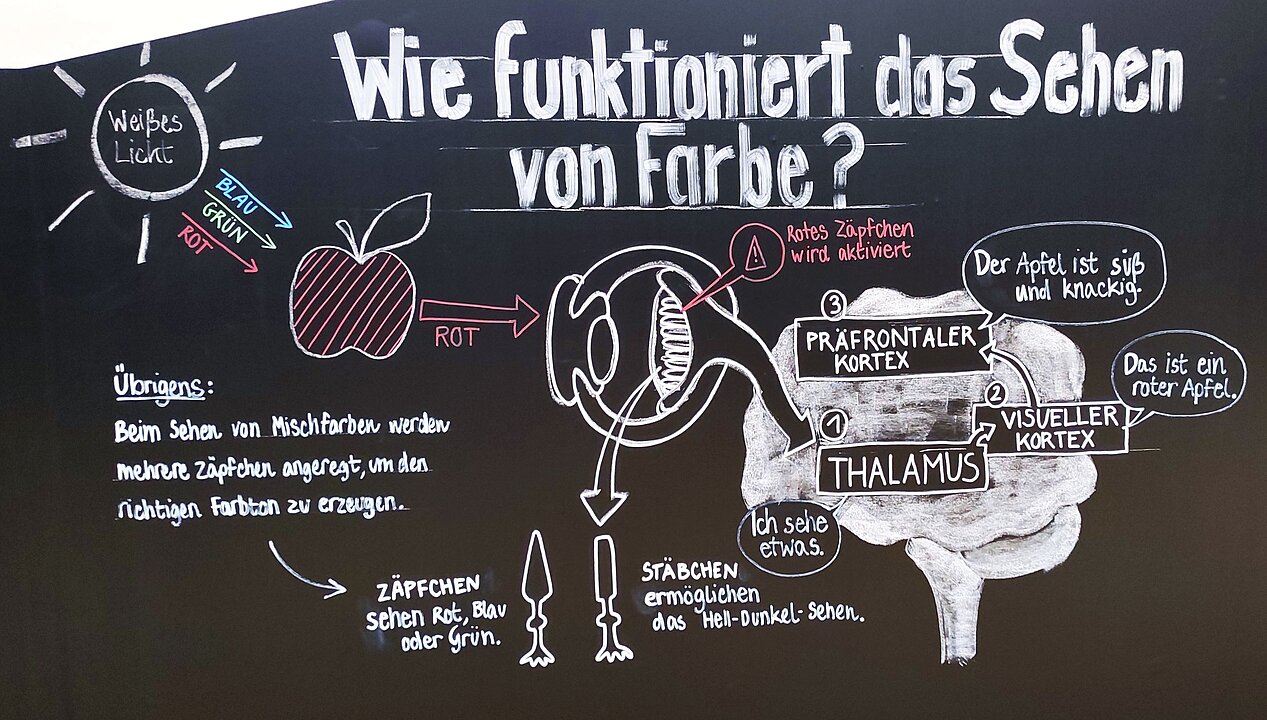 Wie funktioniert das Sehen
von Farbe?
Weißes
Licht
BLAU
GRÜN
ROT
ROT
Rotes Zäpfchen
wird aktiviert
Der Apfel ist süß
und knackig.
3
PRÄFRONTALER
KORTEX
Das ist ein
roter Apfel.
2
VISUELLER
KORTEX
1
THALAMUS
Ich sehe
etwas.
Übrigens:
Beim Sehen von Mischfarben werden
mehrere Zäpfchen angeregt, um den
richtigen Farbton zu erzeugen.
ZÄPFCHEN
sehen Rot, Blau
oder Grün.
STÄBCHEN
ermöglichen
das Hell-Dunkel-Sehen.